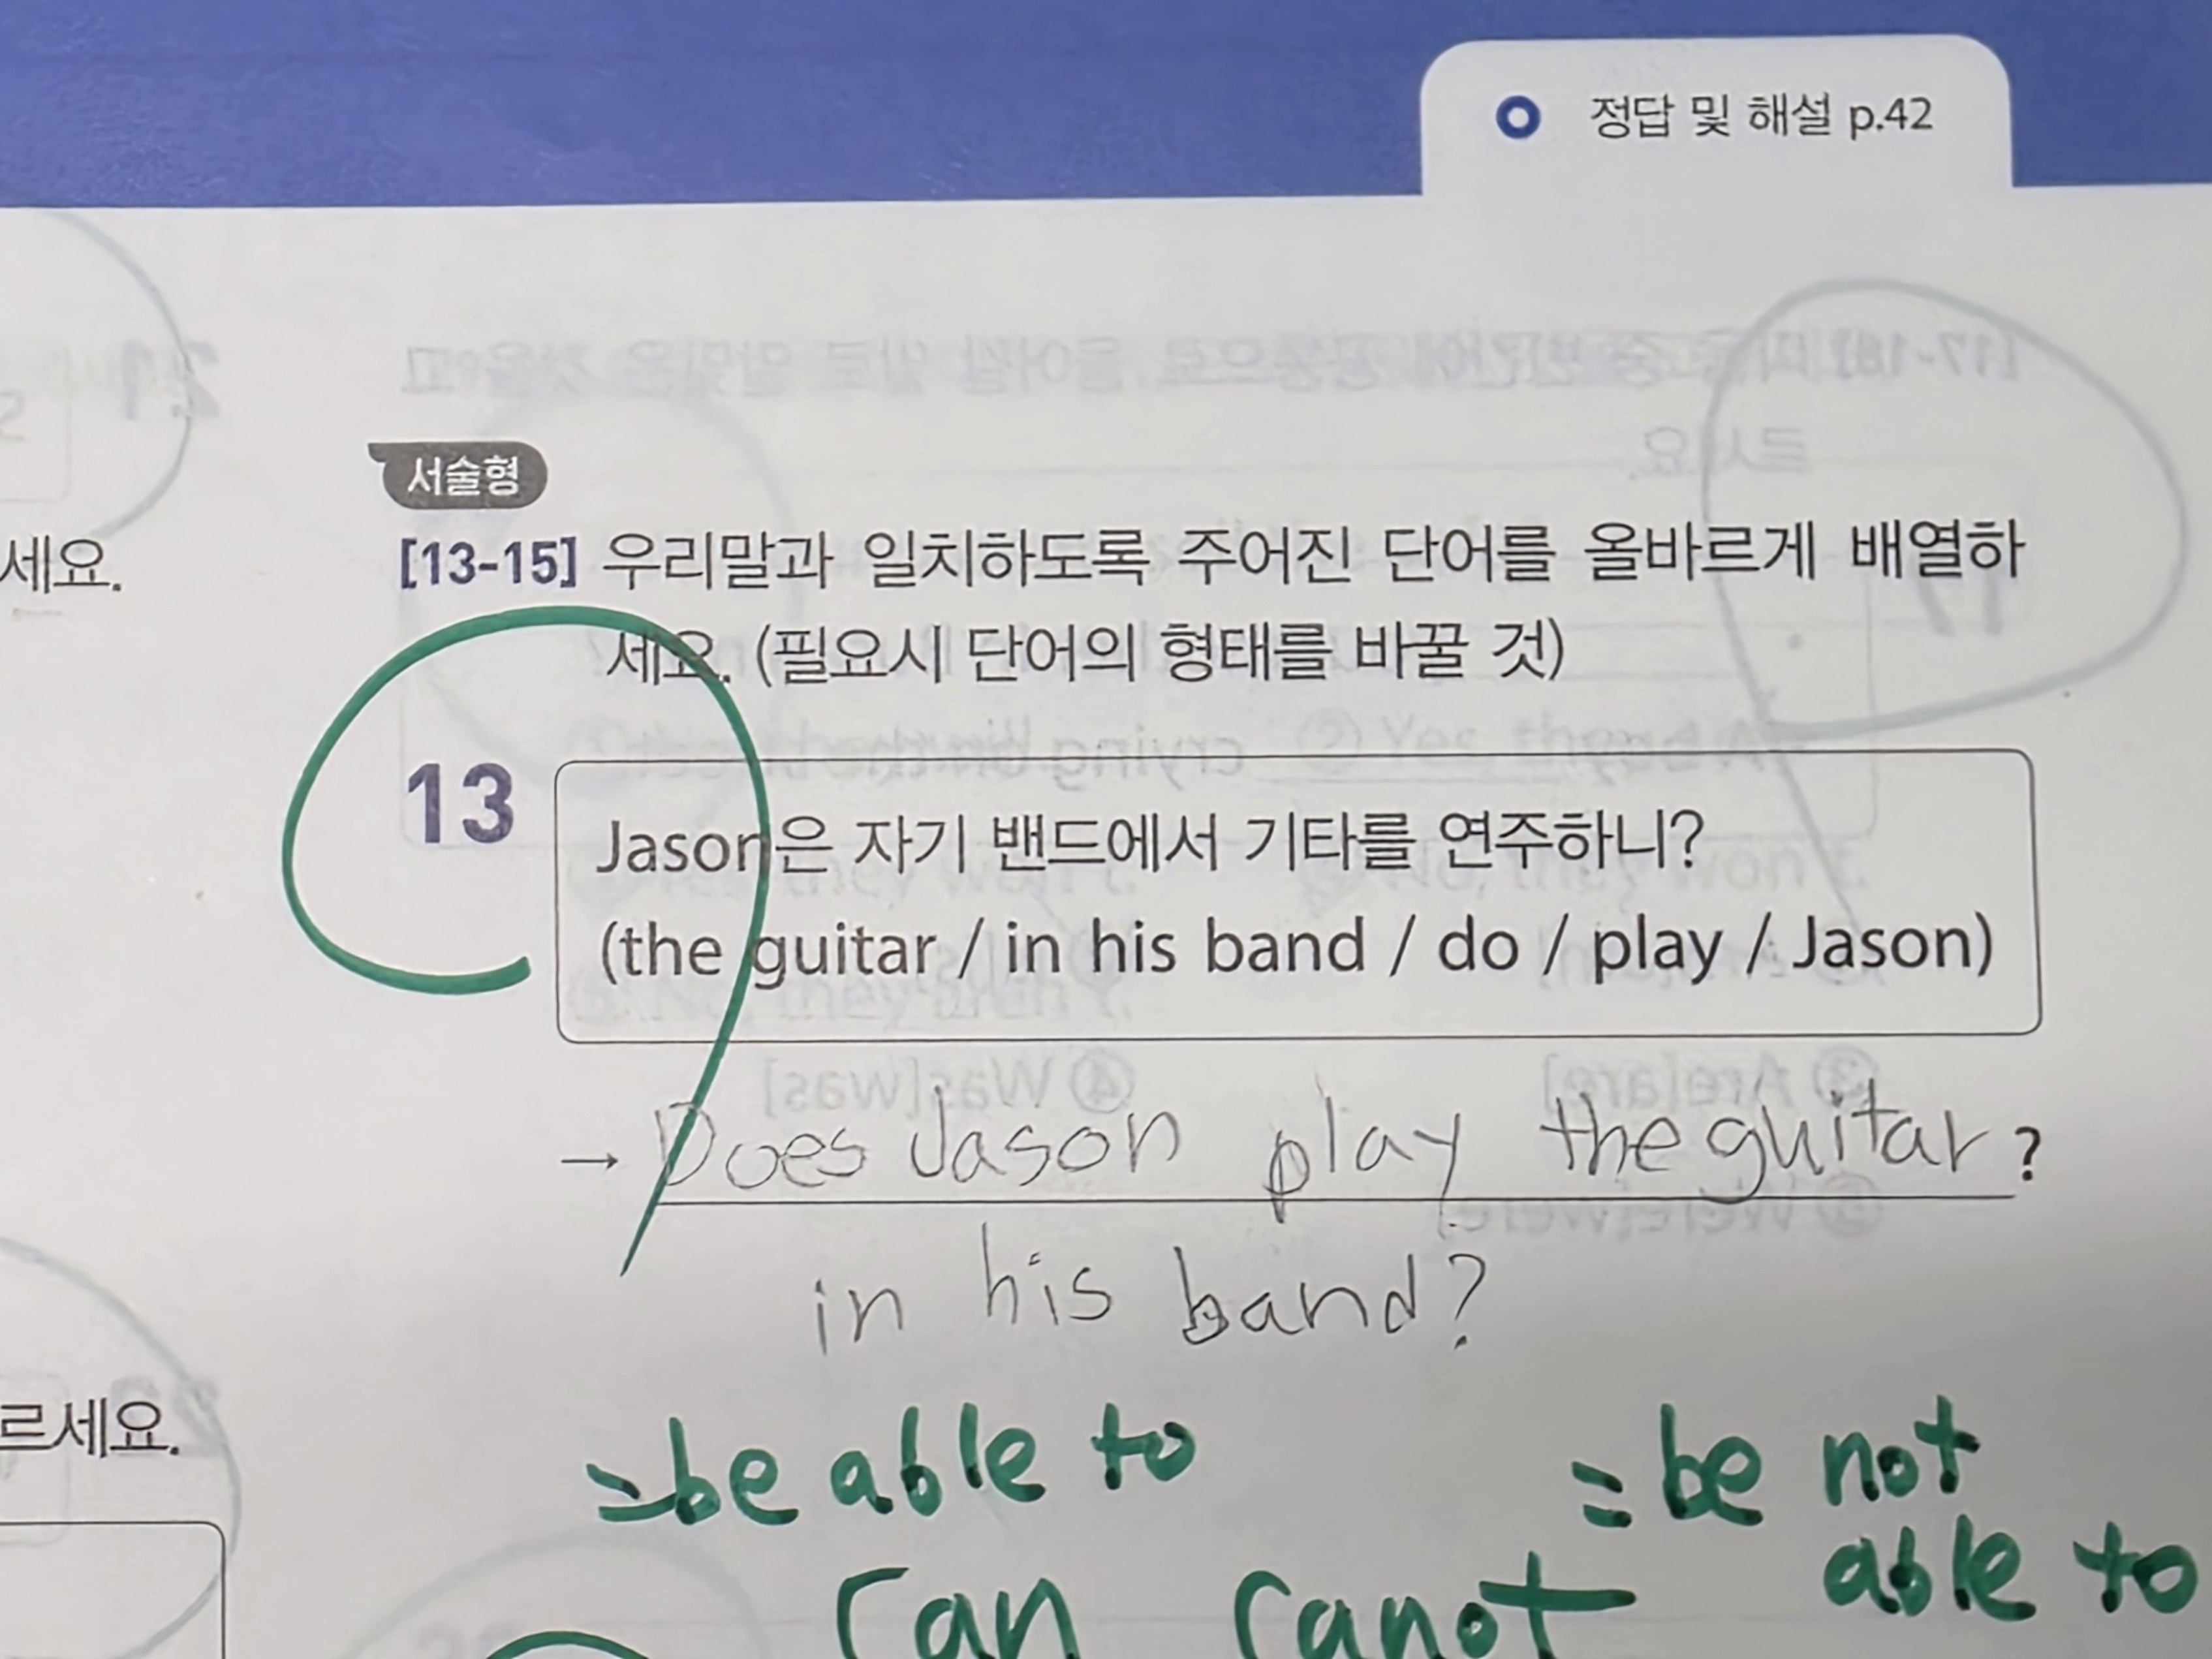 정답 및 해설 p.42
서술형
세요.
[13-15] 우리말과 일치하도록 주어진 단어를 올바르게 배열하
세요. (필요시 단어의 형태를 바꿀 것)
13
Jason은 자기 밴드에서 기타를 연주하니?
(the guitar / in his band / do / play / Jason)
→ Does Jason play the guitar?
in his band?
르세요.
=be able to
=be not
able to
can canot